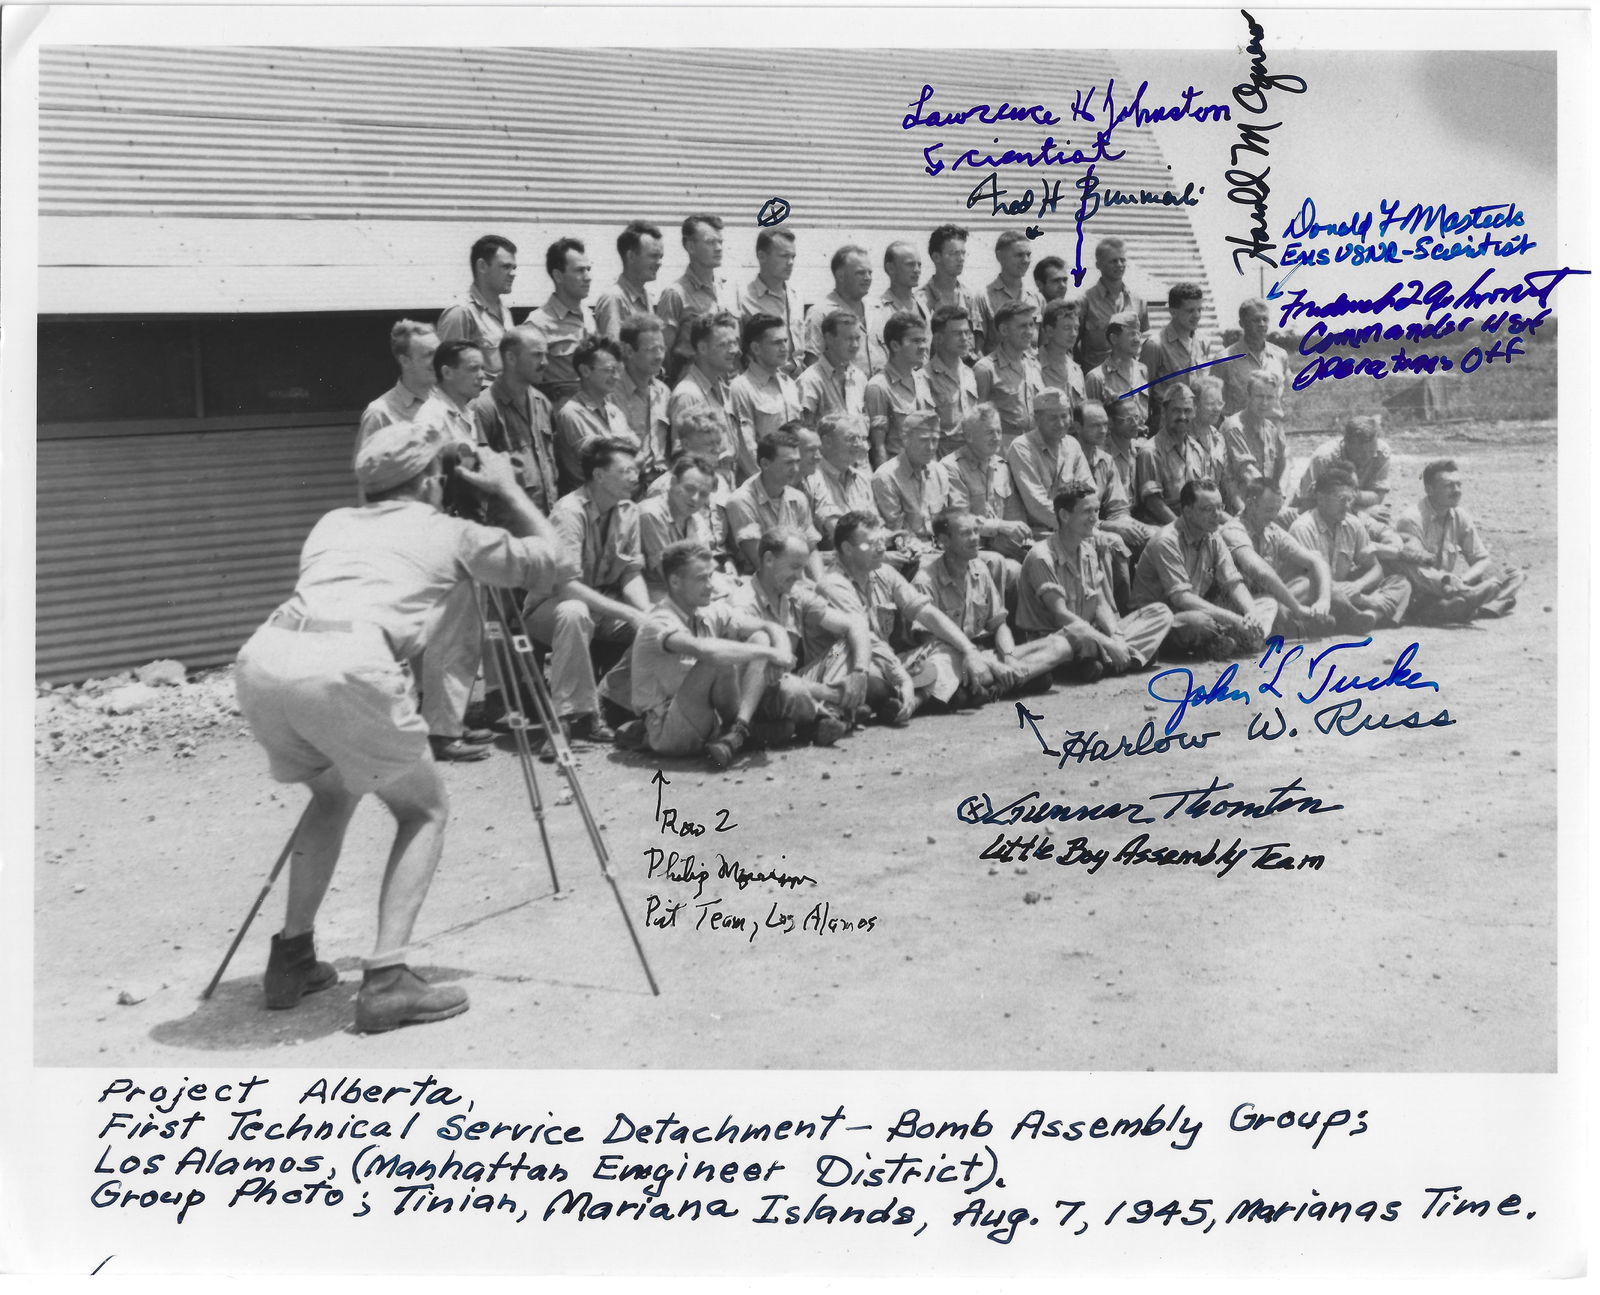 Harold M Agnew
Lawrence H Johnston
Scientist
Donald F Mastick
Ens USNR-Scientist
Frederick L Ashworth
Commander USN
Operations Off
John L Tucker
Harlow W. Russ
Gunnar Thornton
Little Boy Assembly Team
Row 2
Philip Morrison
Pit Team, Los Alamos
Project Alberta,
First Technical Service Detachment - Bomb Assembly Group;
Los Alamos, (Manhattan Engineer District).
Group Photo; Tinian, Mariana Islands, Aug. 7, 1945, Marianas Time.